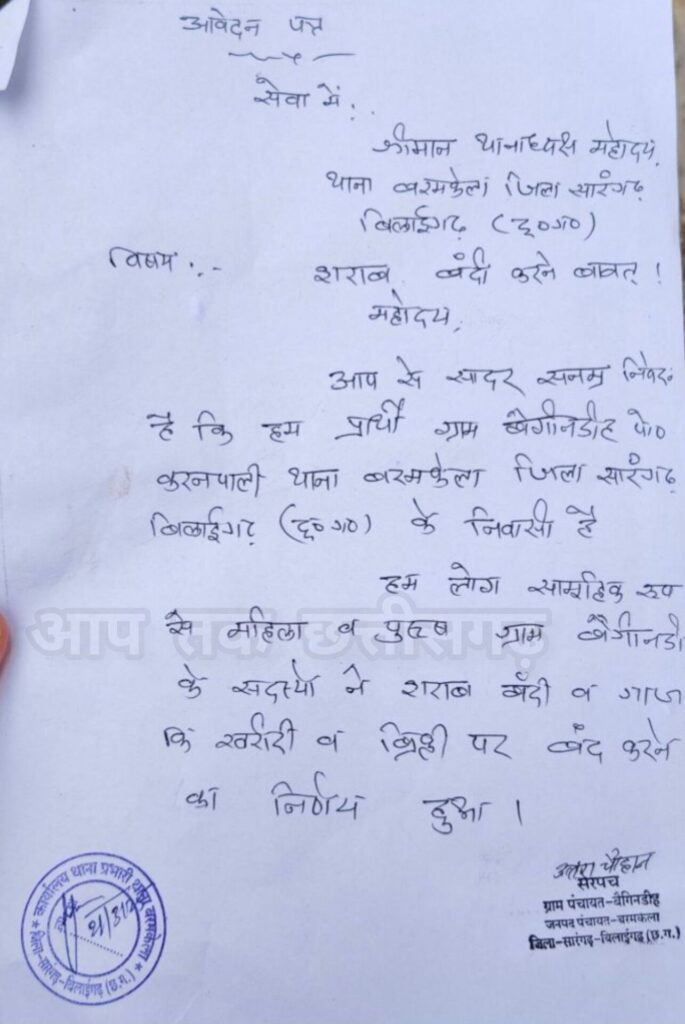 आवेदन पत्र
सेवा में,
श्रीमान थानाध्यक्ष महोदय,
थाना बरमकेला जिला सारंगढ़
बिलाईगढ़ (छ०ग०)
विषय :- शराब बंदी करने बावत् !
महोदय,
आप से सादर सनम्र निवेदन
है कि हम प्रार्थी ग्राम बैगीनडीह पो०
करनपाली थाना बरमकेला जिला सारंगढ़
बिलाईगढ़ (छ०ग०) के निवासी है
हम लोग सामूहिक रूप
से महिला व पुरूष ग्राम बैगीनडी
आप तक छत्तीसगढ़
के सदस्यो ने शराब बंदी व गाजा
कि खरीदी व बिक्री पर बंद करने
का निर्णय हुआ ।
उत्तरा चौहान
सरपंच
ग्राम पंचायत-बैगिनडीह
जनपद पंचायत-बरमकेला
जिला-सारंगढ़-बिलाईगढ़ (छ.ग.)
कार्यालय थाना प्रभारी थाना बरमकेला
जिला-सारंगढ़-बिलाईगढ़ (छ.ग.)